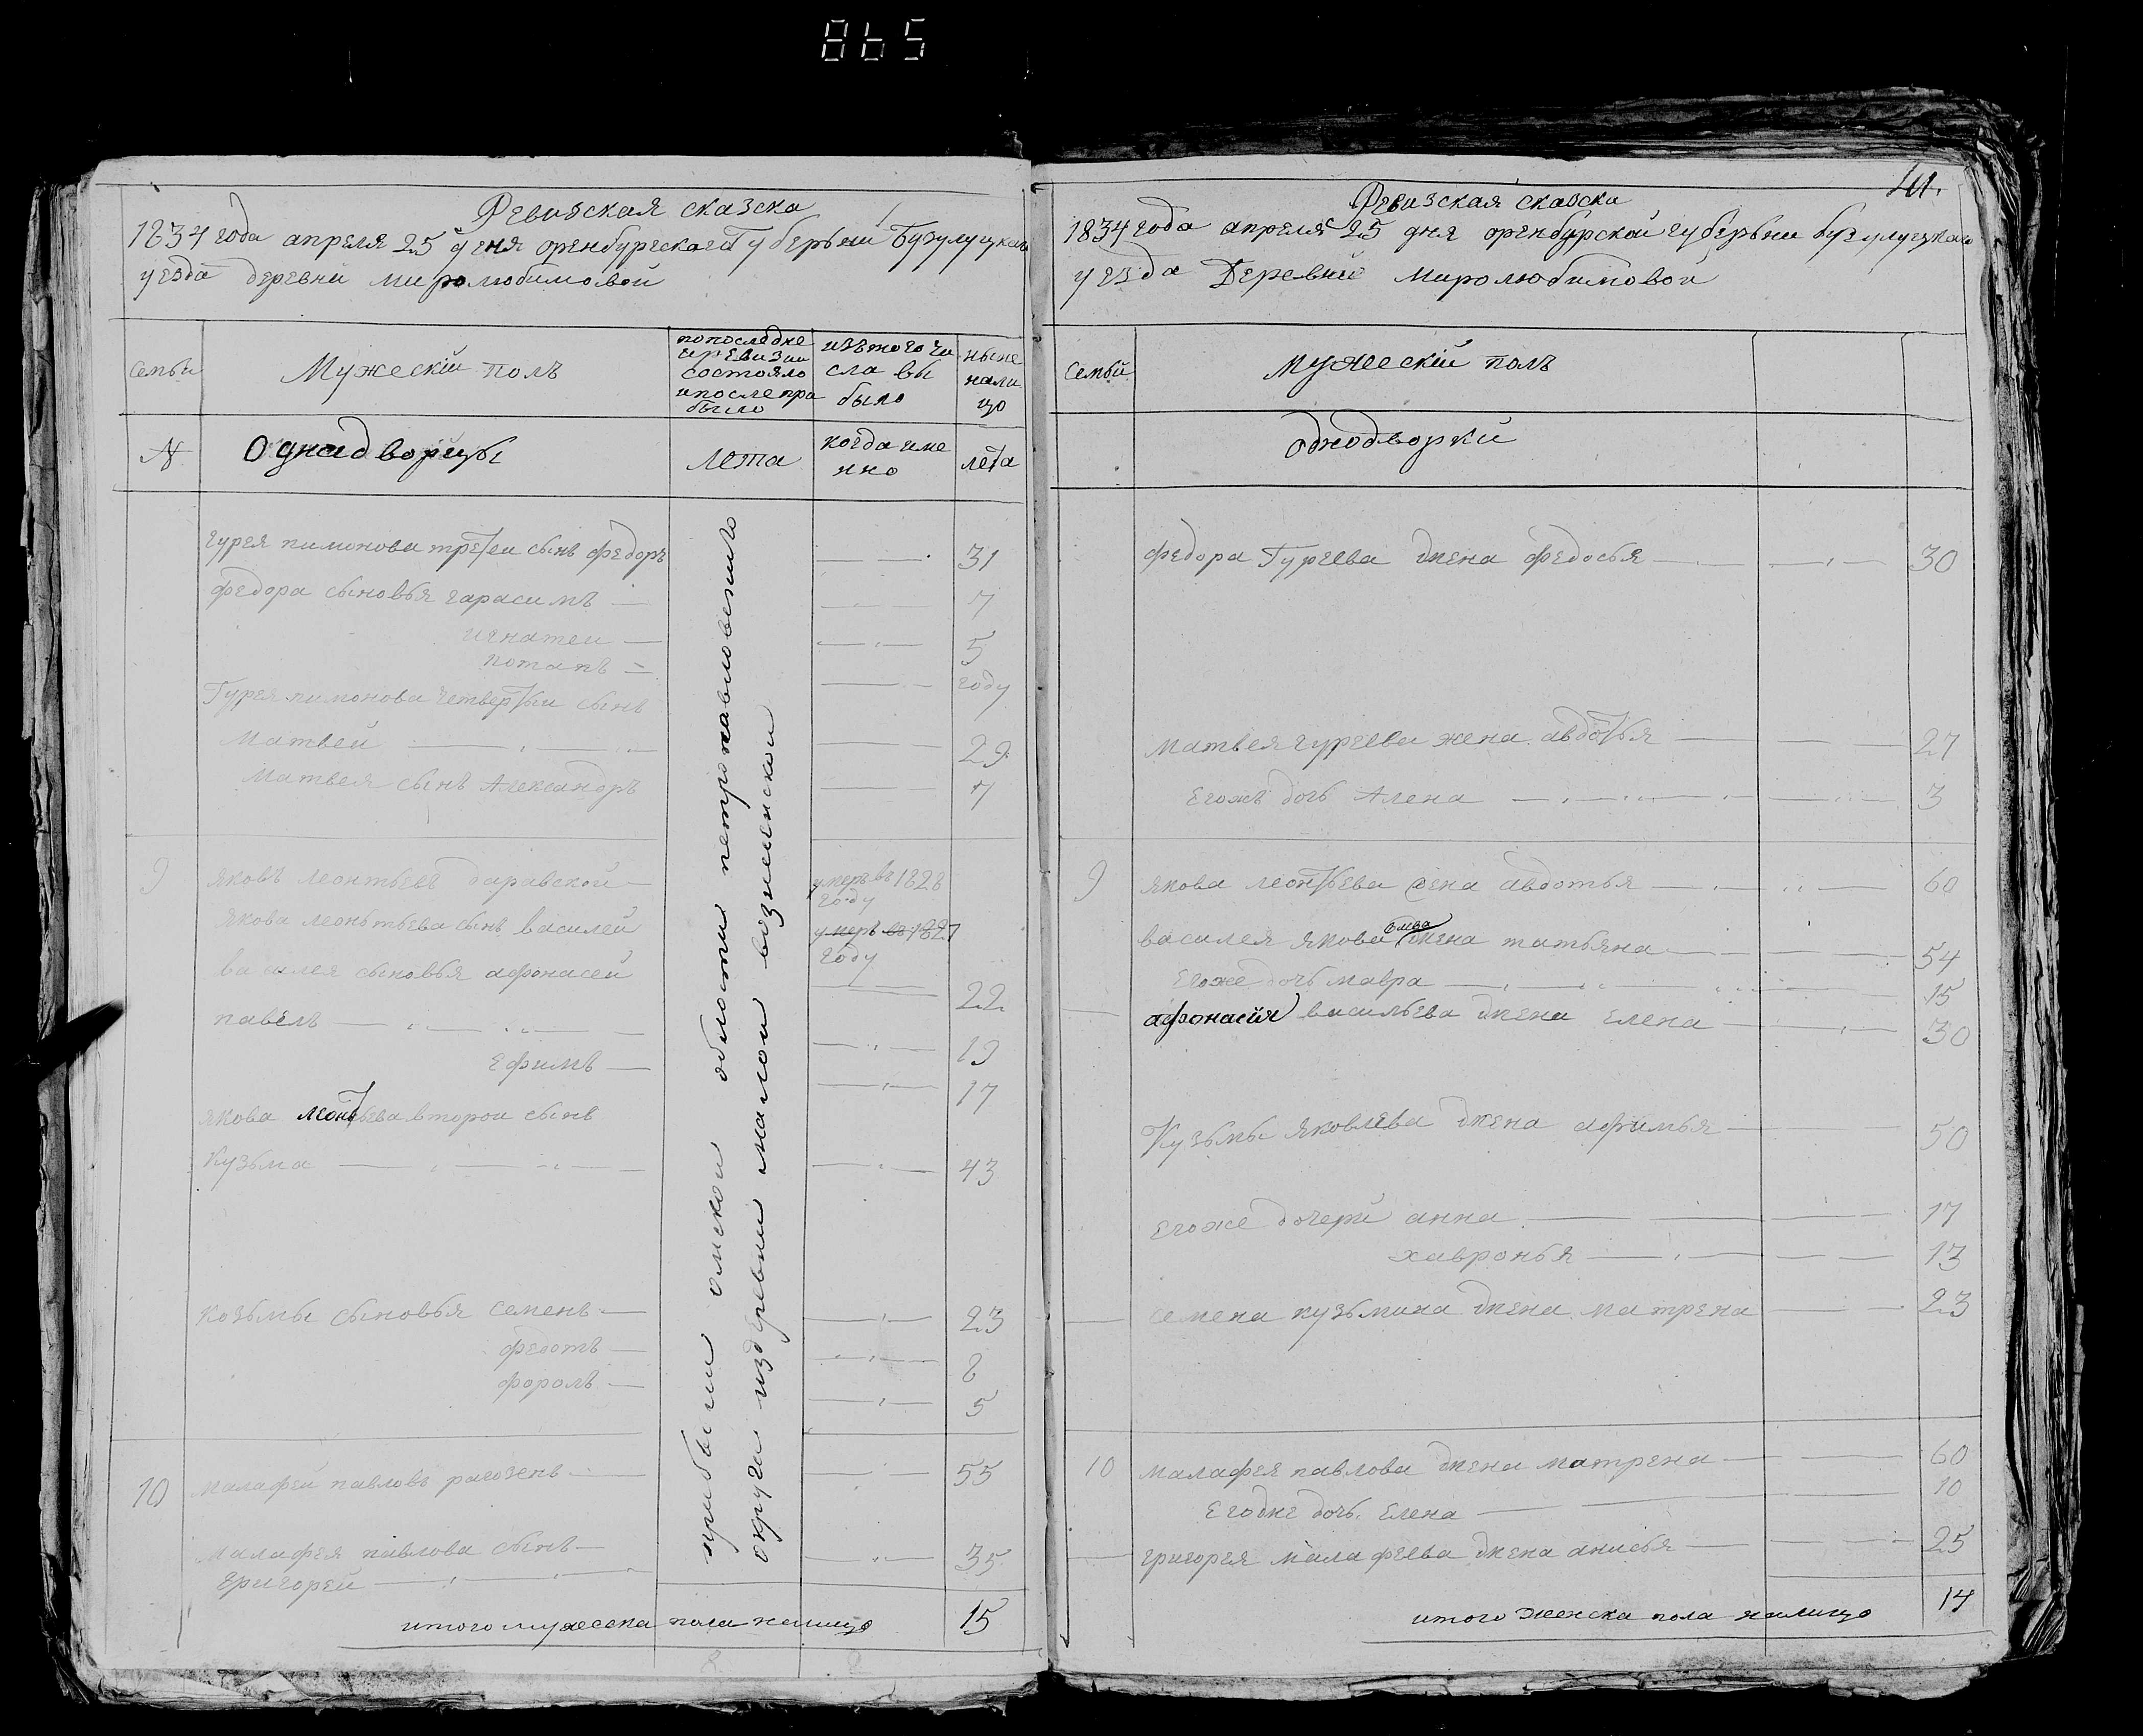 865
Ревизская сказска
1834 года апреля 25 дня оренбургскага Губерьний Бузулуцкаго
уезда деревни миролюбимовой
семьи
Мужескiй полъ
попоследне
и ревизии
состояло
и после при
было
изъ того чи
сла вы
было
ныне
нали
цо
№
Однадворцы
лета
когда име
нно
лета
гурея пимонова третеи сынъ федоръ
31
федора сыновья гарасимъ
7
игнатеи
5
потапъ
году
Гурея пимонова четвертыи сынъ
Матвей
29
Матвея сынъ Александръ
7
9
яковъ леонтьевъ
умеръ въ 1828
году
якова леоньтьева сынъ василей
умеръ въ 1827
году
василея сыновья афонасей
22
павелъ
19
Ефимъ
17
якова леонтьева второи сынъ
кузьма
43
козьмы сыновья семенъ
23
федотъ
8
фролъ
5
10
малафей павловъ
55
Малафея павлова сынъ
григорей
35
прибыли омскои области петропавловскаго
округи издеревни малои вознесенскои
итого мужеска пола налицо
15
Ревизская сказска
1834 года апреля 25 дня оренбурской губерьни бузулуцкаго
уезда Деревни Миролюбимовой
семьй
мужескiй полъ
однодворки
федора Гуреева жена федосья
30
матвея гуреева жена авдотья
27
Егожъ дочь Алена
3
9
якова леонтьева жена авдотья
60
василея якова жена татьяна
54
Егоже дочь мавра
15
афонасiя васильева жена елена
30
Кузьмы яковлева жена афимья
50
Егоже дочери анна
17
хавронья
13
семена кузьмина жена матрена
23
10
малафея павлова жена матрена
60
Егоже дочь Елена
10
григорея малафеева жена анисья
25
итого женска пола налицо
14